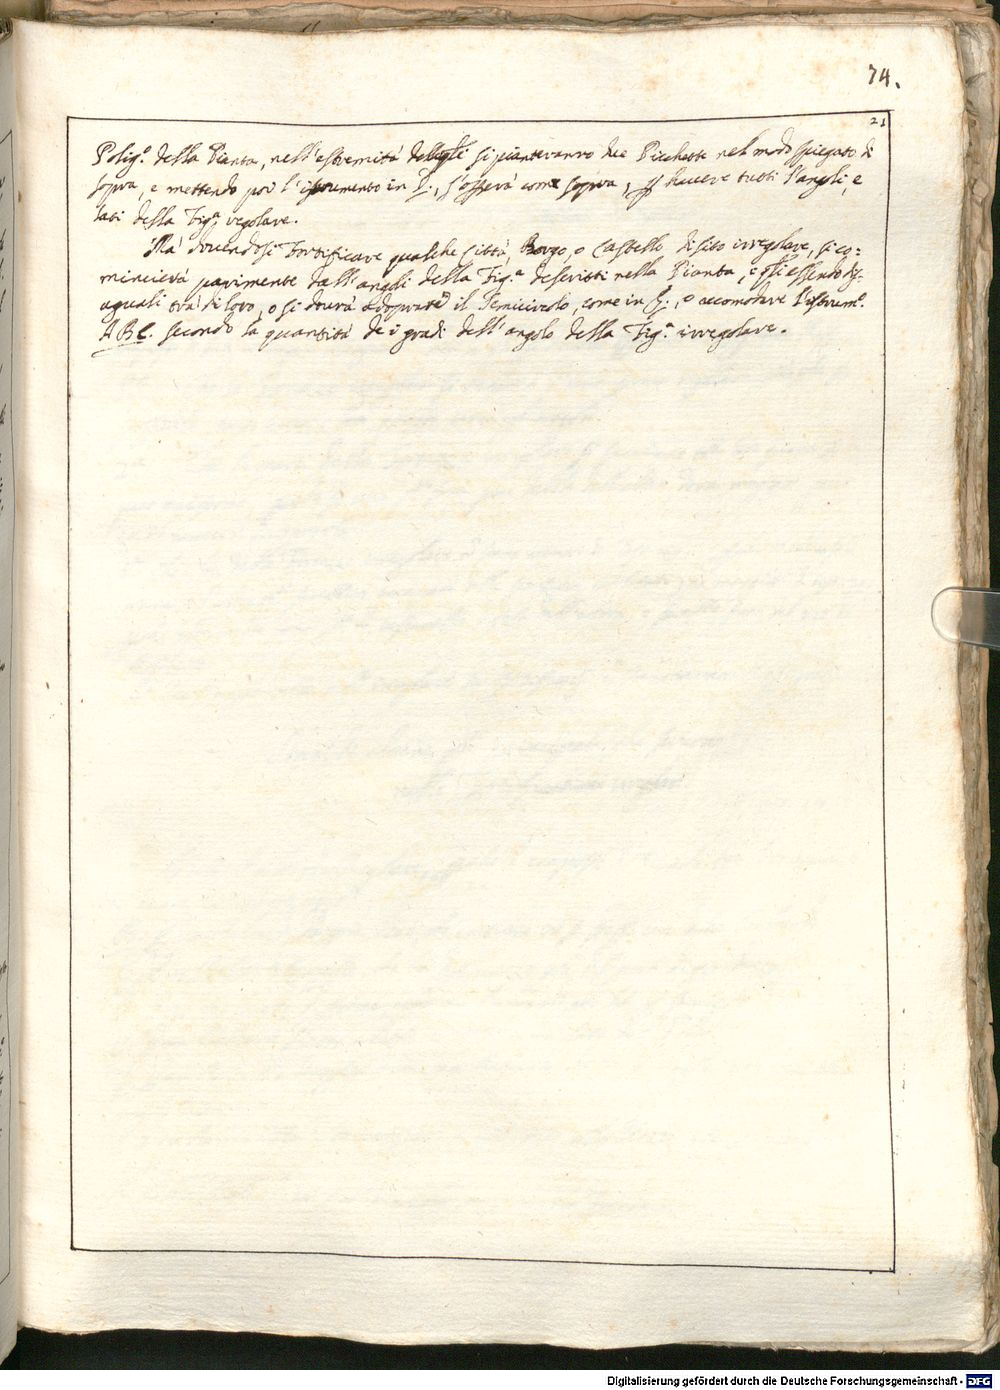 74.
21
Polig.º della Pianta, nell'estremità delle gli si pianteranno due Picchette nel modo spiegato di
sopra, e mettendo poi l'istrumento in L., s'osserà come sopra, p hauere tutti l'angoli, e
lati della Fig.ª regolare.
Mà douendosi Fortificare qualche Città, Borgo, o Castello di sito irregolare, si co-
mincierà parimente dall'angoli della Fig.ª descritti nella Pianta, e gli essendo dis-
aguali trà di loro, o si dourà adoprare il Semicircolo, come in L., o accomodare l'istrum.º
ABC. secondo la quantità de i gradi dell'angolo della Fig.ª irregolare.
Digitalisierung gefördert durch die Deutsche Forschungsgemeinschaft - DFG